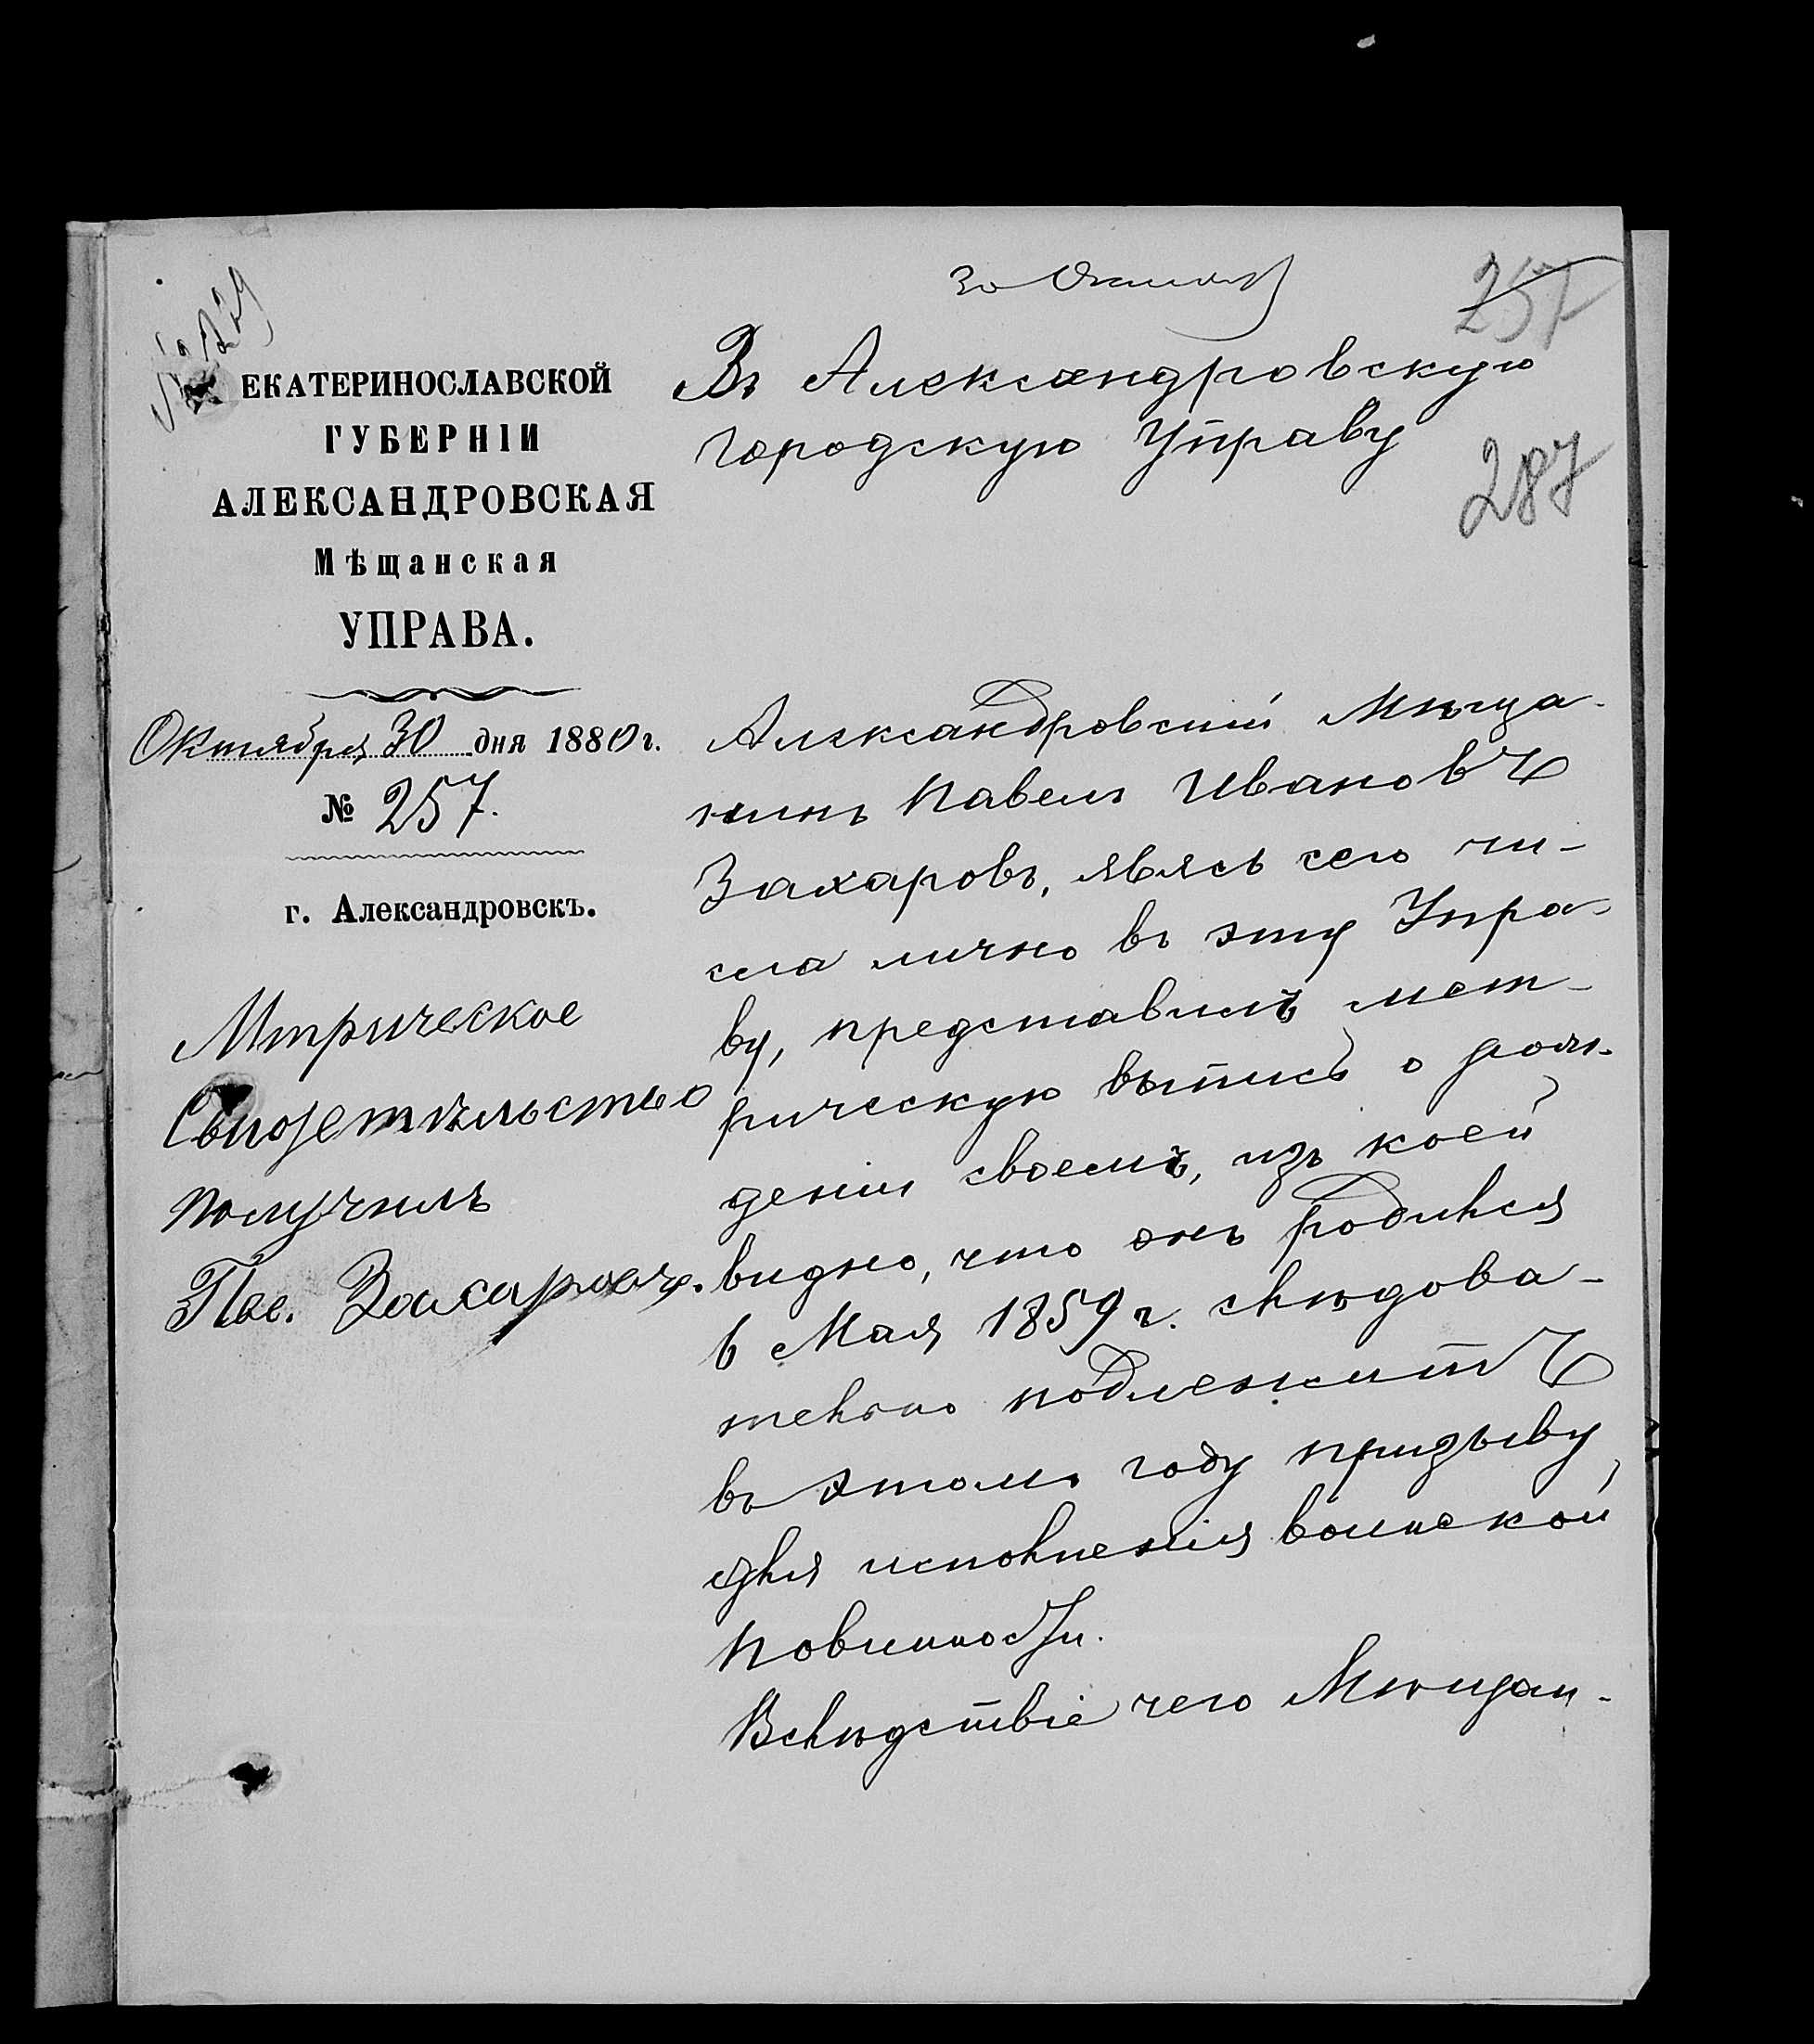 30 Октяб
257
№ 229
ЕКАТЕРИНОСЛАВСКОЙ
ГУБЕРНІИ
АЛЕКСАНДРОВСКАЯ
Мѣщанская
УПРАВА.
Октября 30 дня 1880 г.
№ 257.
г. Александровскъ.
Мтрическое
Свидетѣльство
получилъ
Пав. Захаровъ.
Въ Александровскую
городскую Управу
287
Александровскій Мѣща-
нинъ Павелъ Ивановъ
Захаровъ, явясь сего чи-
сла лично въ эту Упра-
ву, представилъ мет-
рическую выпись о рож-
деніи своемъ, изъ коей
видно, что онъ родился
6 Мая 1859 г. слѣдова-
тельно подлежитъ
въ этомъ году призыву,
для исполненія воинской
повинности.
Вслѣдствіе чего Мѣщан-